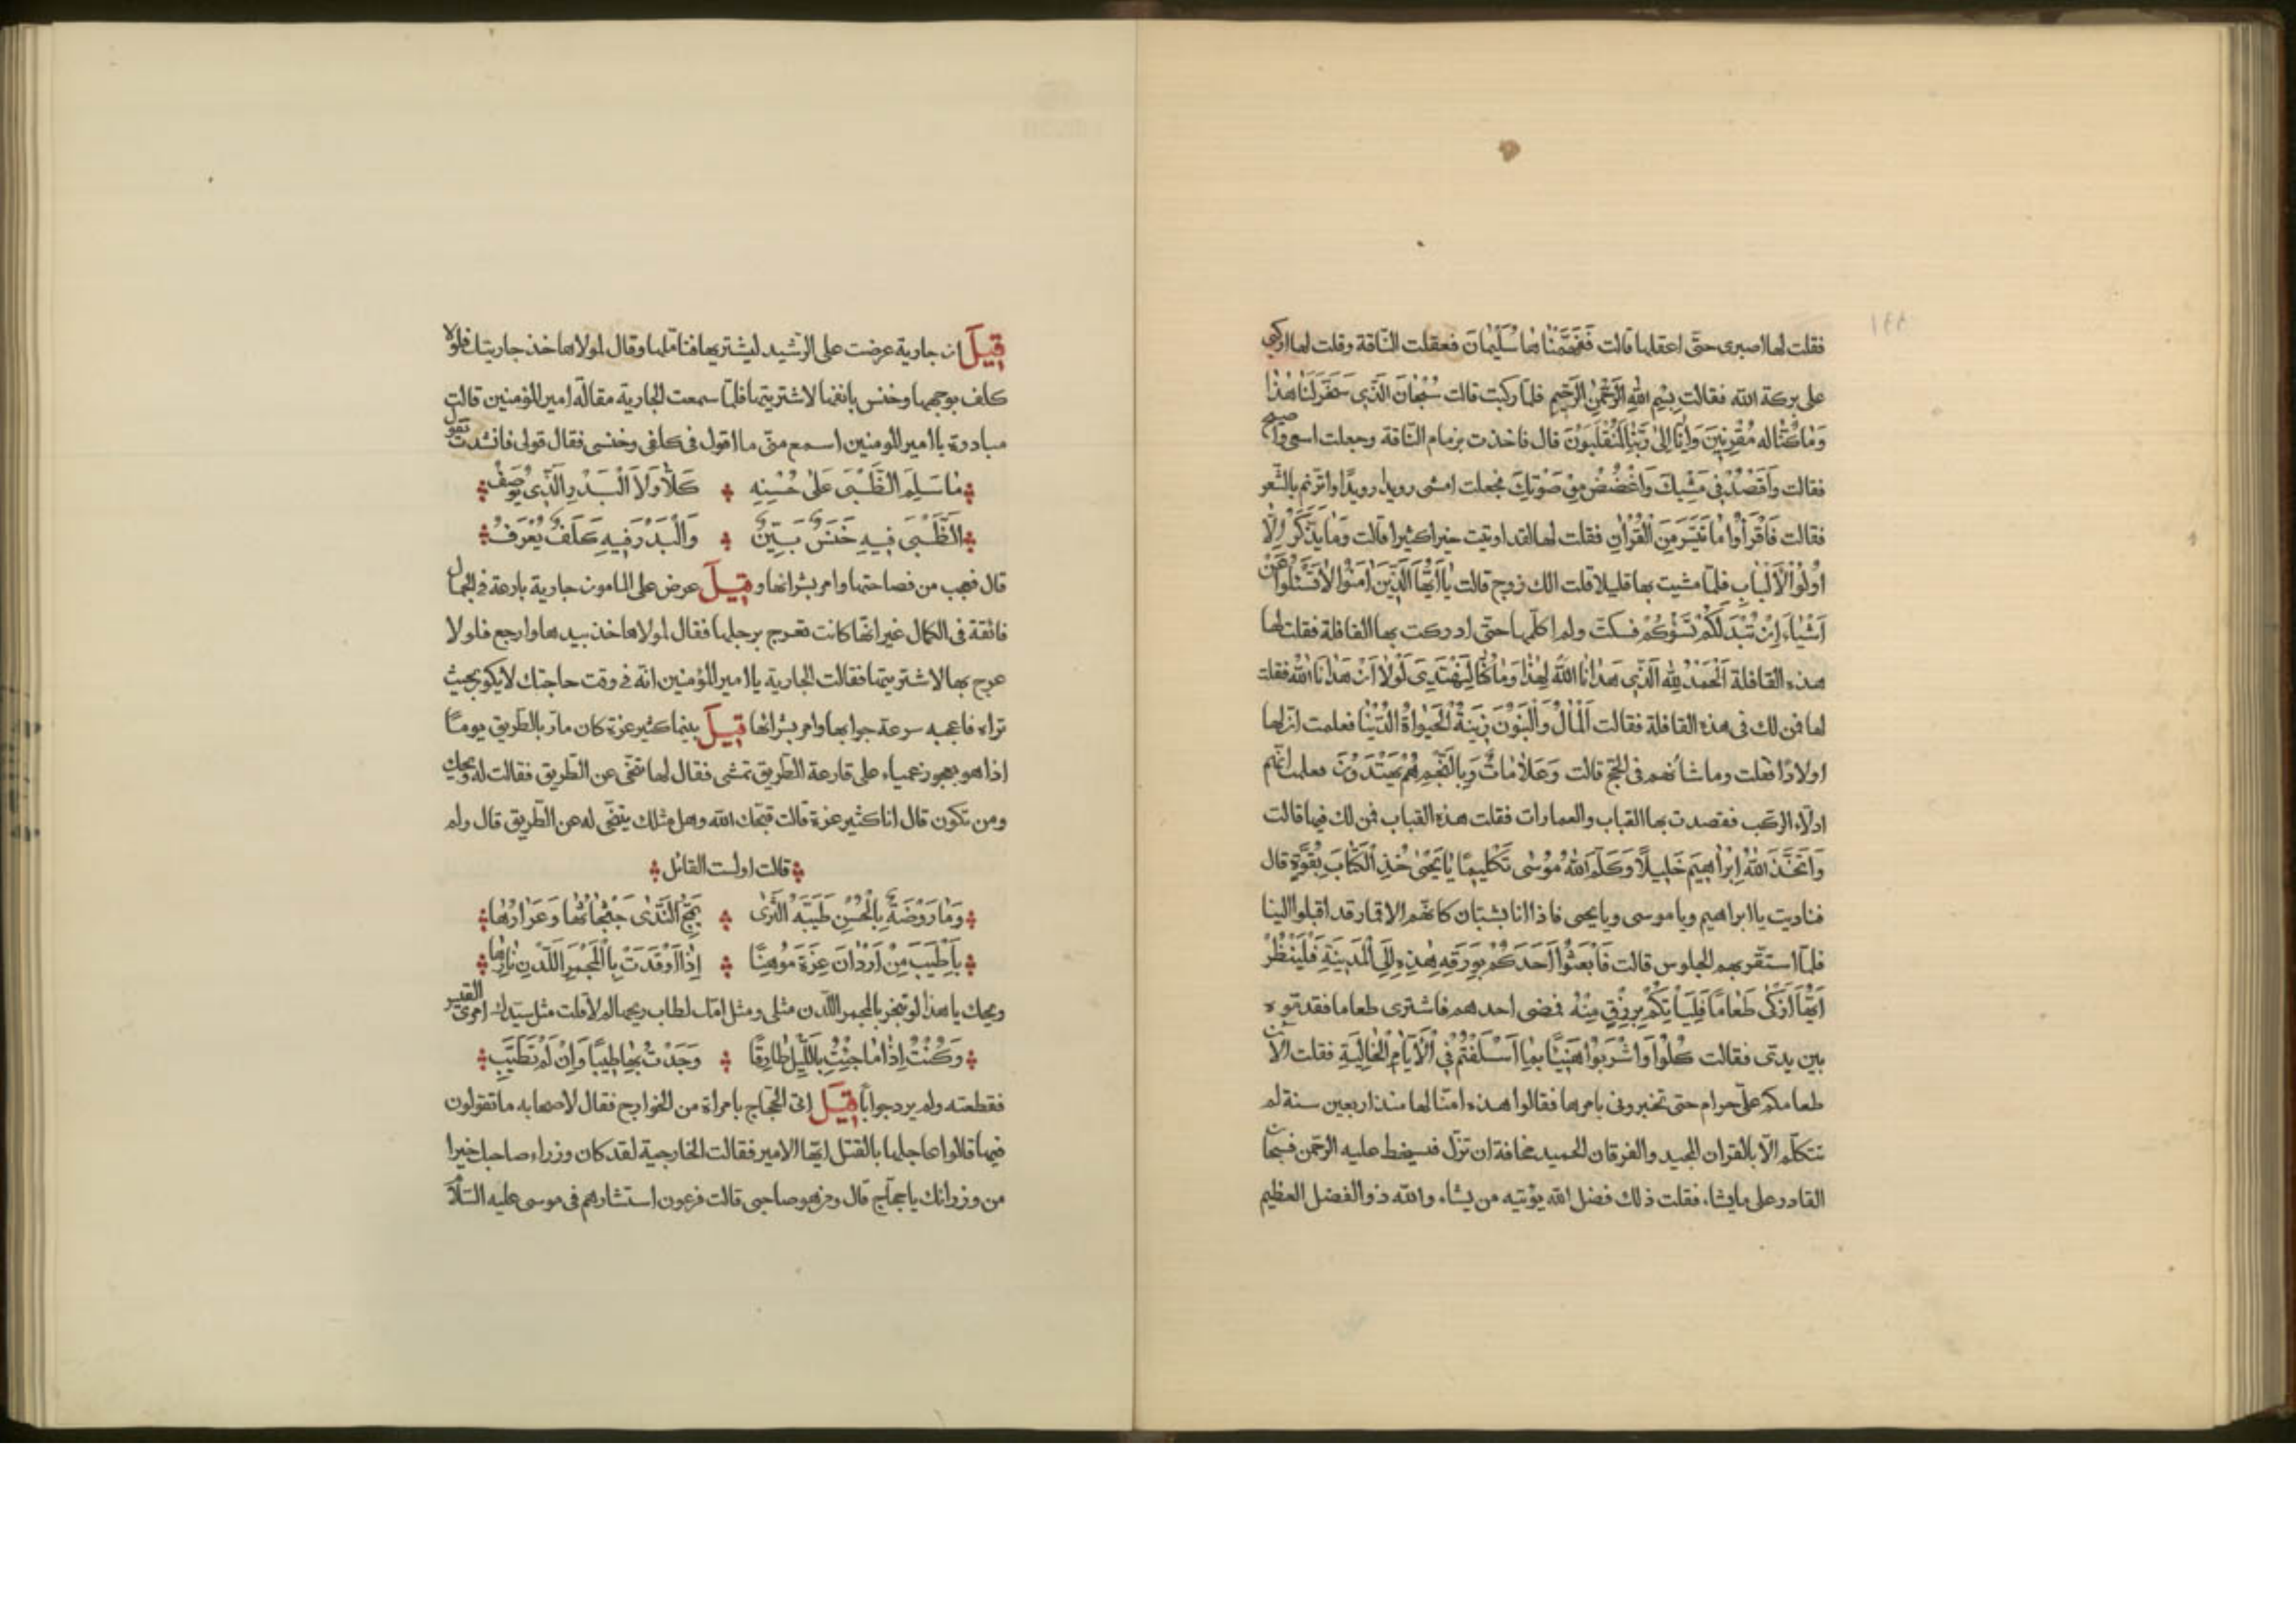 فقلت لها اصبرى حتّى اعقلها قالت فَفَهَّمْنَاهَا سُلَيْمَانَ فعقلت النّاقة وقلت لها اركبى
على بركة الله فقالت بِسْمِ اللهِ الرَّحْمٰنِ الرَّحِيمِ فلمّا ركبت قالت سُبْحَانَ الَّذِى سَخَّرَ لَنَا هٰذَا
وَمَا كُنَّا لَهُ مُقْرِنِينَ وَاِنَّا اِلٰى رَبِّنَا لَمُنْقَلِبُونَ قال فاخذت بزمام النّاقة وجعلت اسعى واصيح
فقالت وَاقْصُدْ فِى مَشْيِكَ وَاغْضُضْ مِنْ صَوْتِكَ فجعلت امشى رويدا رويدًا واترنم بالشّعر
فقالت فَاقْرَأُوا مَا تَيَسَّرَ مِنَ الْقُرْاٰنِ فقلت لها لقد اوتيت خيرا كثيرا قالت وَمَا يَذَّكَّرُ اِلَّا
اُولُوا الْاَلْبَابِ فلمّا مشيت بها قليلا قلت الك زوج قالت يَا اَيُّهَا الَّذِينَ اٰمَنُوا لَا تَسْئَلُوا عَنْ
اَشْيَاءَ اِنْ تُبْدَ لَكُمْ تَسُؤْكُمْ فسكتّ ولم اكلّمها حتّى ادركت بها القافلة فقلت لها
هذه القافلة اَلْحَمْدُ لِلّٰهِ الَّذِى هَدَانَا اللهُ لِهٰذَا وَمَا كُنَّا لِنَهْتَدِىَ لَوْلَا اَنْ هَدَانَا اللهُ فقلت
لها فمن لك فى هذه القافلة فقالت اَلْمَالُ وَالْبَنُونَ زِينَةُ الْحَيٰوةِ الدُّنْيَا فعلمت انّ لها
اولادًا فقلت وما شأنهم فى الحجّ قالت وَعَلَامَاتٍ وَبِالنَّجْمِ هُمْ يَهْتَدُونَ فعلمت انّهم
ادلّاء الركب فقصدت بها القباب والعمارات فقلت هذه القباب فمن لك فيها قالت
وَاتَّخَذَ اللهُ اِبْرَاهِيمَ خَلِيلًا وَكَلَّمَ اللهُ مُوسٰى تَكْلِيمًا يَا يَحْيٰى خُذِ الْكِتَابَ بِقُوَّةٍ قال
فناديت يا ابراهيم ويا موسى ويا يحيى فاذا انا بشبّان كانّهم الاقمار قد اقبلوا الينا
فلمّا استقرّ بهم الجلوس قالت فَابْعَثُوا اَحَدَكُمْ بِوَرِقِكُمْ هٰذِهِ اِلَى الْمَدِينَةِ فَلْيَنْظُرْ
اَيُّهَا اَزْكٰى طَعَامًا فَلْيَأْتِكُمْ بِرِزْقٍ مِنْهُ فمضى احدهم فاشترى طعاما فقدّموه
بين يدىّ فقالت كُلُوا وَاشْرَبُوا هَنِيئًا بِمَا اَسْلَفْتُمْ فِى الْاَيَّامِ الْخَالِيَةِ فقلت الآن
طعامكم علىّ حرام حتى تخبرونى بامرها فقالوا هذه امّنا لها منذ اربعين سنة لم
تتكلّم الّا بالقران المجيد والفرقان الحميد مخافة ان تزلّ فيسخط عليه الرّحمن فسبحان
القادر على ما يشاء فقلت ذلك فضل الله يؤتيه من يشاء والله ذو الفضل العظيم
قِيلَ ان جارية عرضت على الرّشيد ليشتريها فتأمّلها وقال لمولاها خذ جاريتك فلولا
كلف بوجهها وخنس بانفها لاشتريتها فلمّا سمعت الجارية مقالة امير المؤمنين قالت
مبادرة يا امير المومنين اسمع منّى ما اقول فى كلفى وخنسى فقال قولى فانشدت تقول
مَا سَلِمَ الظَّبْىُ عَلٰى حُسْنِهِ كَلَّا وَلَا الْبَدْرُ الَّذِى يُوصَفُ
اَلظَّبْىُ فِيهِ خَنَسٌ بَيِّنٌ وَالْبَدْرُ فِيهِ كَلَفٌ يُعْرَفُ
قال فعجب من فصاحتها وامر بشرائها وقِيلَ عرض على المامون جارية بارعة فى الجمال
فائقة فى الكمال غير انّها كانت تعرج برجلها فقال لمولاها خذ بيدها وارجع فلولا
عرج بها لاشتريتها فقالت الجارية يا امير المؤمنين انّه فى وقت حاجتك لا يكون بحيث
تراه فاعجبه سرعة جوابها وامر بشرائها قِيلَ بينما كثير عزة كان مارّ بالطريق يومًا
اذا هو بعجوز عمياء على قارعة الطّريق تمشى فقال لها تنحّى عن الطّريق فقالت له ويحك
ومن تكون قال انا كثير عزة قالت قبّحك الله وهل مثلك يتنحّى له عن الطّريق قال ولم
قالت اولست القائل
وَمَا رَوْضَةٌ بِالْحُسْنِ طَيِّبَةُ الثَّرٰى يَمُجُّ النَّدٰى جَثْجَاثُهَا وَعَرَارُهَا
بِاَطْيَبَ مِنْ اَرْدَانِ عِزَّةَ مَوْهِنًا اِذَا اَوْقَدَتْ بِالْمِجْمَرِ اللَّدْنِ نَارَهَا
ويحك يا هذا لو تبخر بالمجمر اللّدن مثلى ومثل امّك لطاب ريحها لم لا قلت مثل سيّدك امرئ القيس
وَكُنْتُ اِذَا مَا جِئْتُ بِاللَّيْلِ طَارِقًا وَجَدْتُ بِهَا طِيبًا وَاِنْ لَمْ تَطَيَّبِ
فقطعته ولم يرد جوابًا قِيلَ اتى الحجّاج بامراة من الخوارج فقال لاصحابه ما تقولون
فيها قالوا عاجلها بالقتل ايّها الامير فقالت الخارجية لقد كان وزراء صاحبك خيرا
من وزرائك يا حجّاج قال ومن هو صاحبى قالت فرعون استشارهم فى موسى عليه السّلام